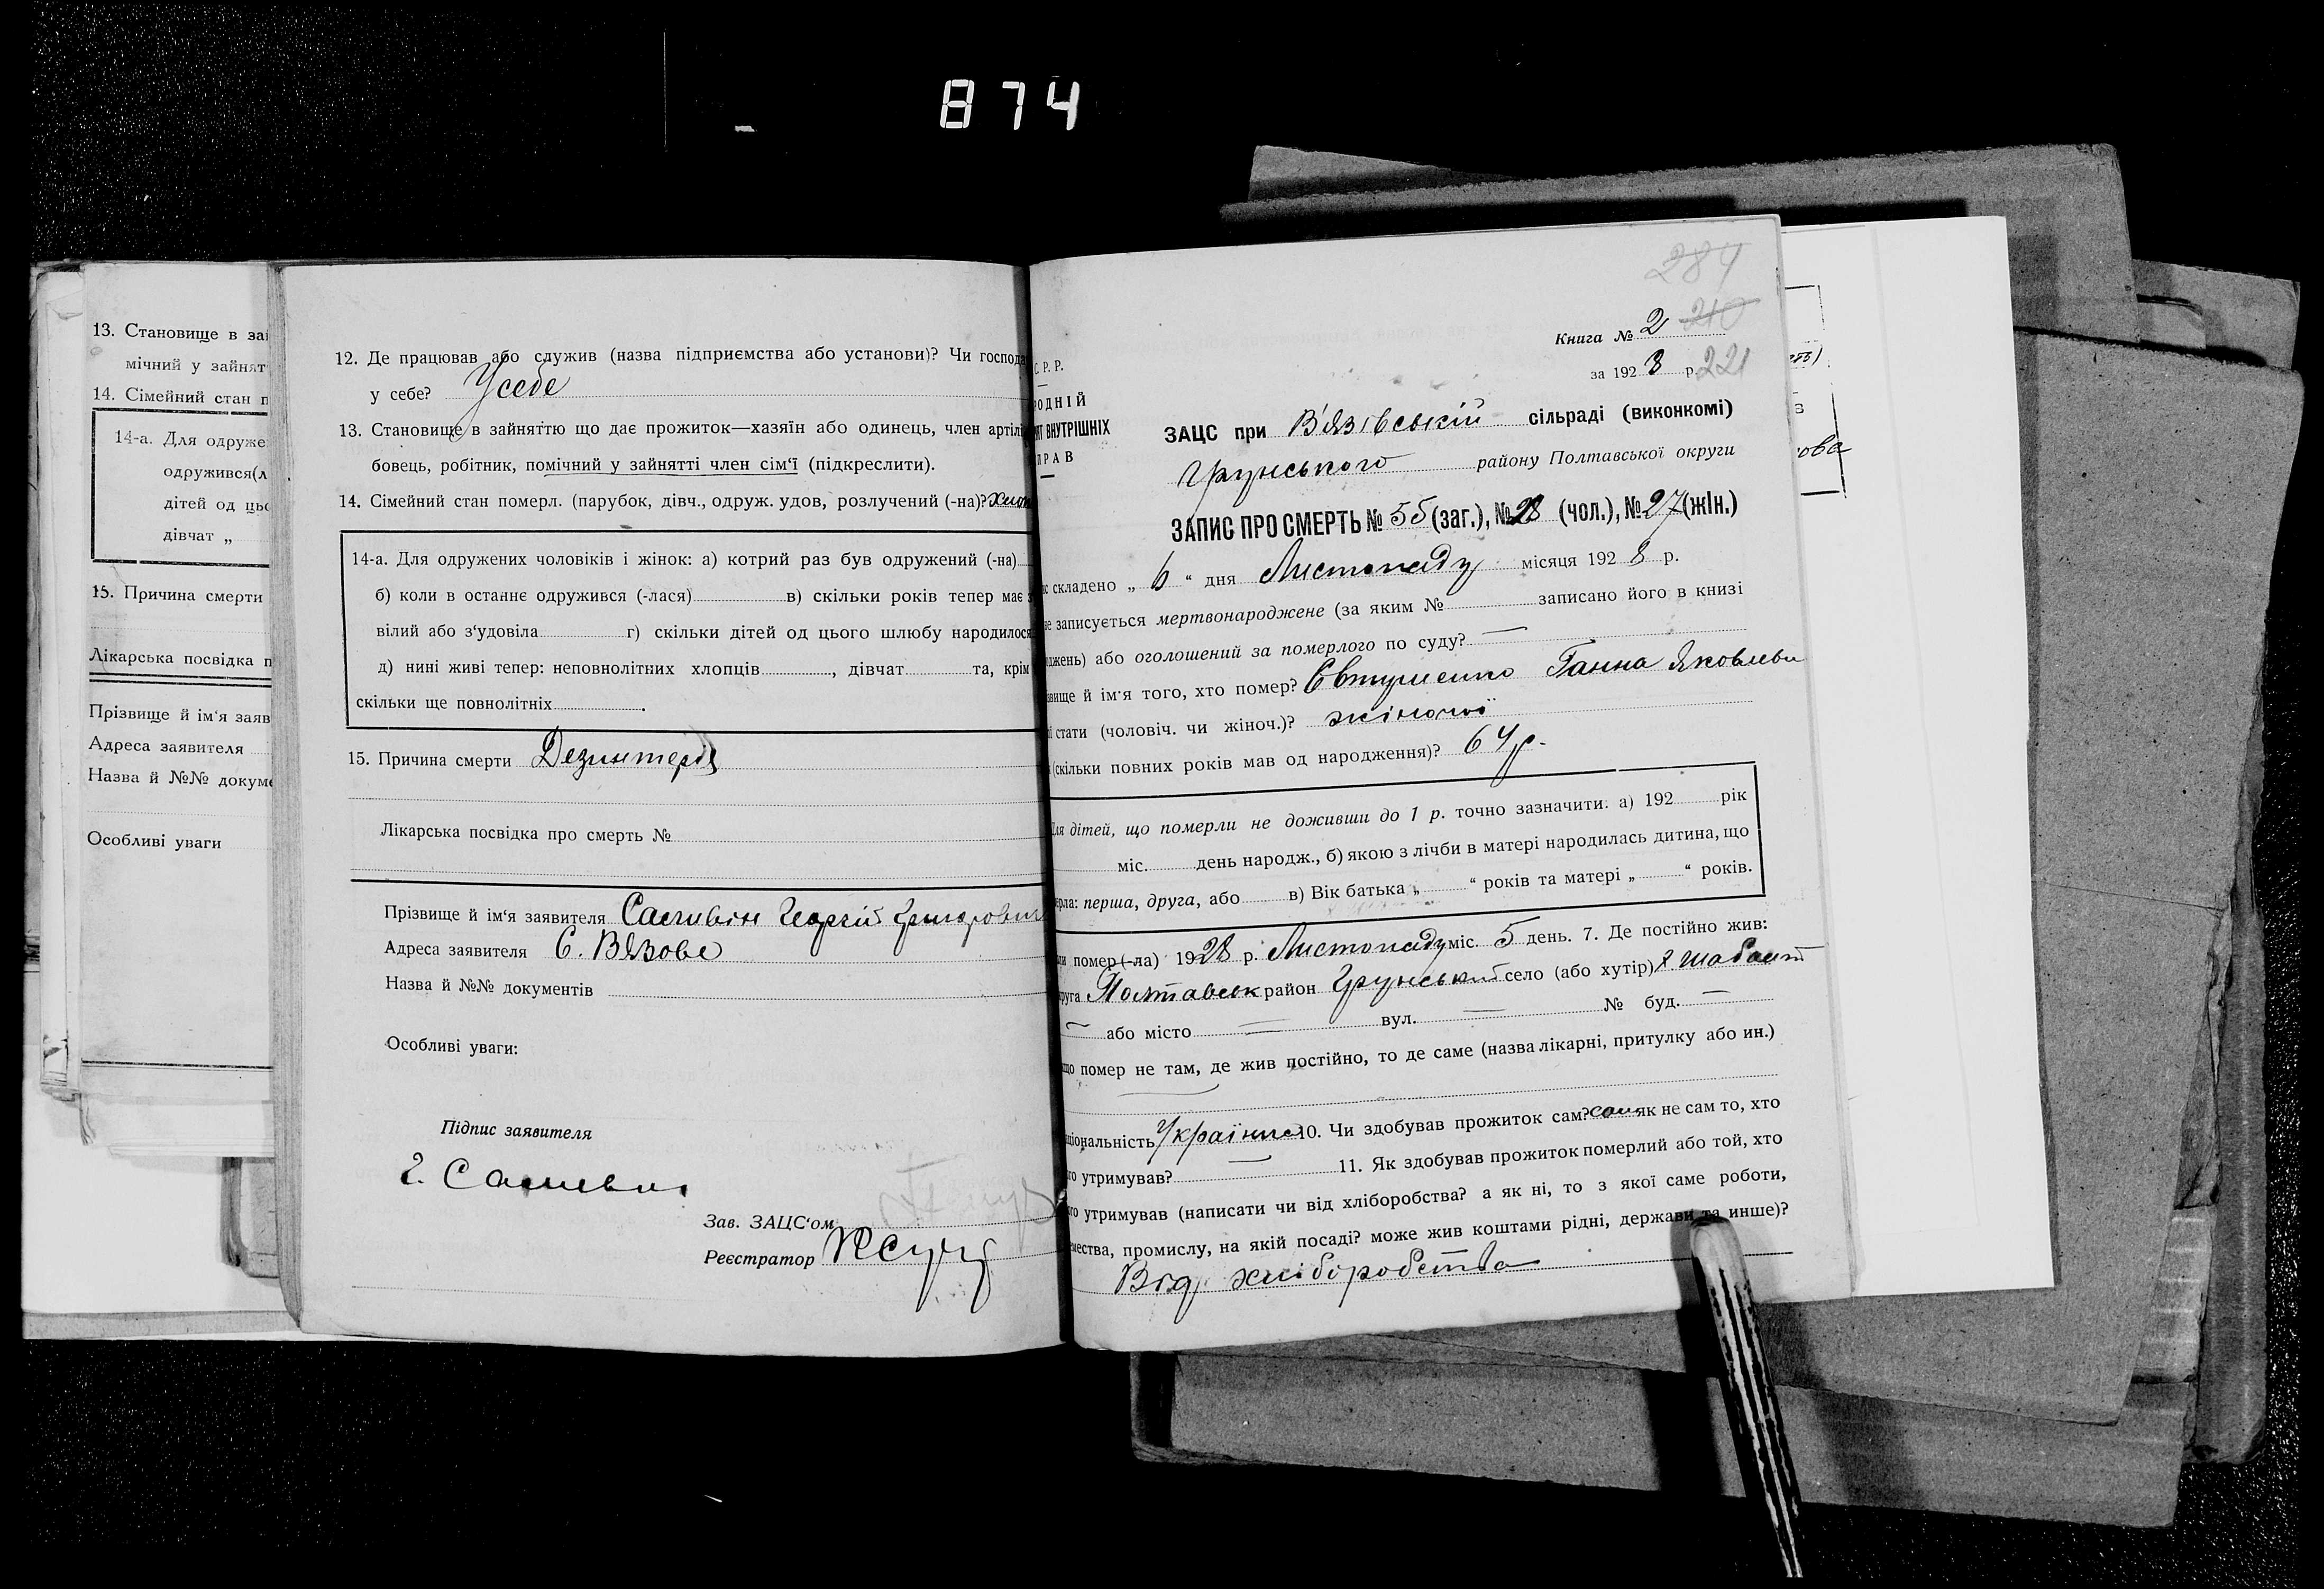 874
13. Становище в зай
мічний у зайнят
14. Сімейний стан п
14-а. Для одруже
одружився(л
дітей од цьо
дівчат „
15. Причина смерти
Лікарська посвідка п
Прізвище й ім'я заяв
Адреса заявителя
Назва й №№ докуме
Особливі уваги
12. Де працював або служив (назва підприємства або установи)? Чи господа
у себе? У себе
13. Становище в зайняттю що дає прожиток—хазяїн або одинець, член артілі
бовець, робітник, помічний у зайнятті член сім'ї (підкреслити).
14. Сімейний стан померл. (парубок, дівч., одруж. удов, розлучений (-на)?
14-а. Для одружених чоловіків і жінок: а) котрий раз був одружений (-на)
б) коли в останнє одружився (-лася) в) скільки років тепер має з
вілий або з'удовіла г) скільки дітей од цього шлюбу народилося
д) нині живі тепер: неповнолітних хлопців , дівчат та, крім
скільки ще повнолітніх .
15. Причина смерти Дезинтерія
Лікарська посвідка про смерть №
Прізвище й ім'я заявителя Георгій Григорович
Адреса заявителя С. Вязове
Назва й №№ документів
Особливі уваги:
Підпис заявителя
Зав. ЗАЦС'ом
Реєстратор
284
Книга № 2 210
за 192 8 р. 221
С.Р.Р.
РОДНІЙ
ВНУТРІШНІХ
ПРАВ
ЗАЦС при В'язівській сільраді (виконкомі)
Грунського району Полтавської округи
ЗАПИС ПРО СМЕРТЬ № 55 (заг.), № 28 (чол.), № 27 (жін.)
с складено „ 6 “ дня Листопаду місяця 192 8 р.
не записується мертвонароджене (за яким № записано його в книзі
джень) або оголошений за померлого по суду? —
звище й ім'я того, хто помер? Євтушенко Ганна Яковлевн
ї стати (чоловіч. чи жіноч.)? жіночої
(скільки повних років мав од народження)? 64 р.
Для дітей, що померли не доживши до 1 р. точно зазначити: а) 192 рік
міс. день народж., б) якою з лічби в матері народилась дитина, що
ерла: перша, друга, або в) Вік батька „ “ років та матері „ “ років.
ли помер (-ла) 1928 р. Листопаду міс. 5 день. 7. Де постійно жив:
руга Полтавськ район Грунський село (або хутір) х.
— або місто — вул. — № буд. —
що помер не там, де жив постійно, то де саме (назва лікарні, притулку або ин.)
ціональність Українка 10. Чи здобував прожиток сам? сам як не сам то, хто
го утримував? — 11. Як здобував прожиток померлий або той, хто
го утримував (написати чи від хліборобства? а як ні, то з якої саме роботи,
мества, промислу, на якій посаді? може жив коштами рідні, держави та инше)?
Від хліборобства